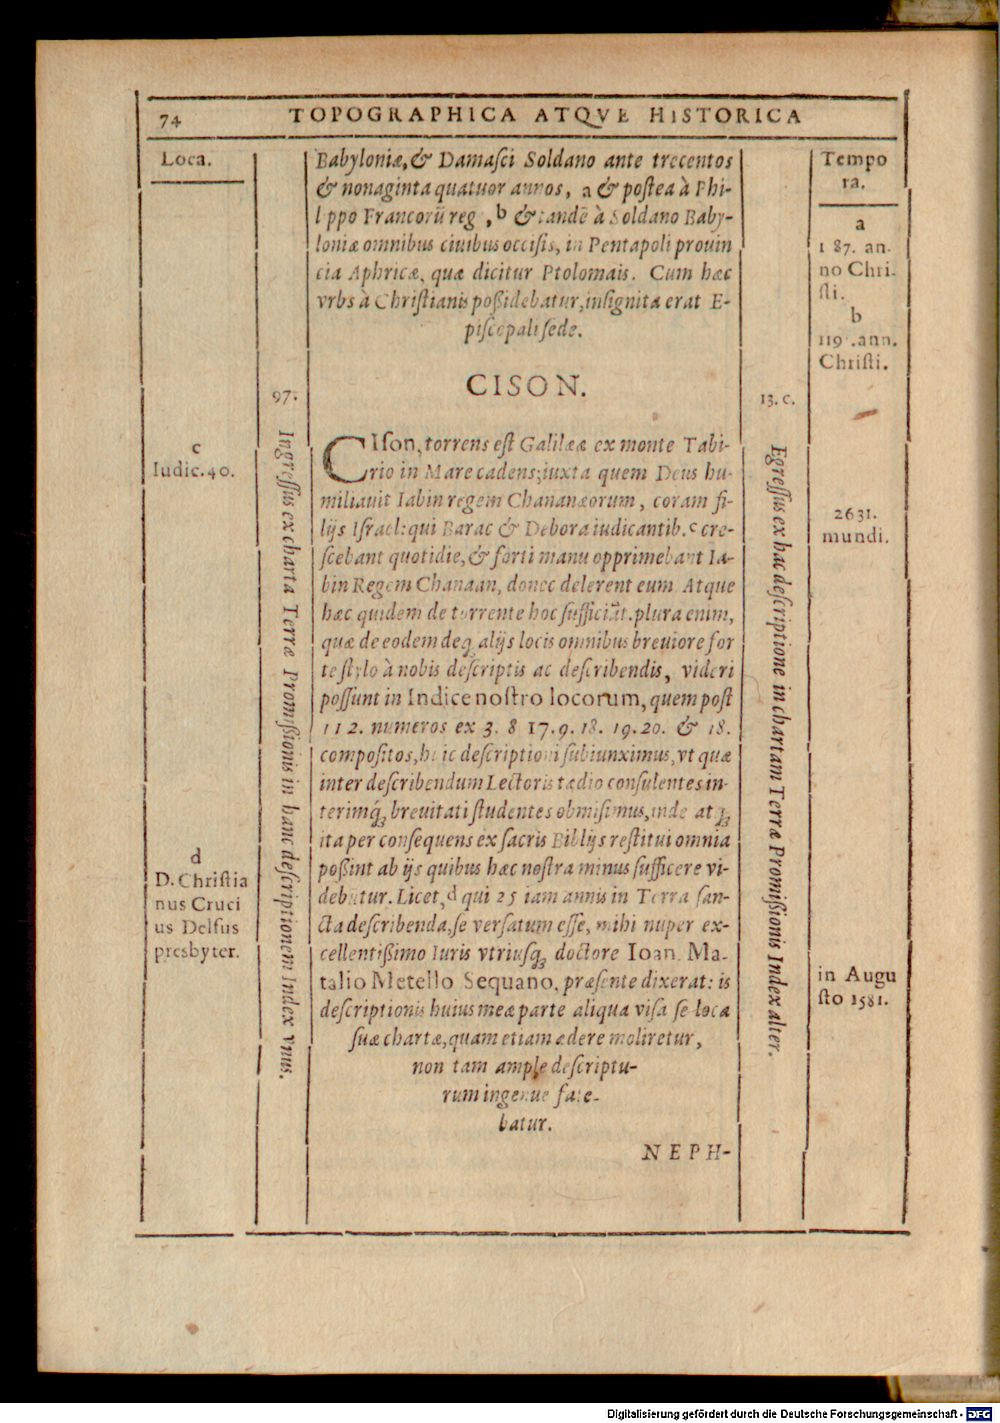 74
TOPOGRAPHICA ATQVE HISTORICA
Loca.
c
Iudic.40.
d
D. Christia
nus Cruci
us Delfus
presbyter.
97.
Ingressus ex charta Terræ Promißionis in hanc descriptionem Index vnus.
Babyloniæ, & Damasci Soldano ante trecentos
& nonaginta quatuor annos, a & postea à Phi-
l ppo Francorũ reg , b & tandẽ à Soldano Baby-
loniæ omnibus ciuibus occisis, in Pentapoli prouin
cia Aphricæ, quæ dicitur Ptolomais. Cum hæc
vrbs à Christianis poßidebatur, insignita erat E-
piscopali sede.
CISON.
CIson, torrens est Galilææ ex monte Tabi-
rio in Mare cadens; iuxta quem Deus hu-
miliauit Iabin regem Chananæorum, coram fi-
lijs Israel: qui Barac & Debora iudicantib. c cre-
scebant quotidie, & forti manu opprimebant Ia-
bin Regem Chanaan, donec delerent eum Atque
hæc quidem de torrente hoc sufficiãt. plura enim,
quæ de eodem deq; alijs locis omnibus breuiore for
te stylo à nobis descriptis ac describendis, videri
possunt in Indice nostro locorum, quem post
112. numeros ex 3. 8 17. 9. 18. 19. 20. & 18.
compositos, huic descriptioni subiunximus, vt quæ
inter describendum Lectoris tædio consulentes in-
terimq́; breuitati studentes obmisimus, inde atq;
ita per consequens ex sacris Biblijs restitui omnia
poßint ab ijs quibus hæc nostra minus sufficere vi-
debũtur. Licet, d qui 25 iam annis in Terra san-
cta describenda, se versatum esse, mihi nuper ex-
cellentißimo Iuris vtriusq; doctore Ioan. Ma-
talio Metello Sequano, præsente dixerat: is
descriptionis huius meæ parte aliqua visa se loca
suæ chartæ, quam etiam ædere moliretur,
non tam ample descriptu-
rum ingenue fate-
batur.
NEPH-
13. c.
Egressus ex hac descriptione in chartam Terræ Promißionis Index alter.
Tempo
ra.
a
1 87. an-
no Chri-
sti.
b
119 .ann.
Christi.
2631.
mundi.
in Augu
sto 1581.
Digitalisierung gefördert durch die Deutsche Forschungsgemeinschaft - DFG